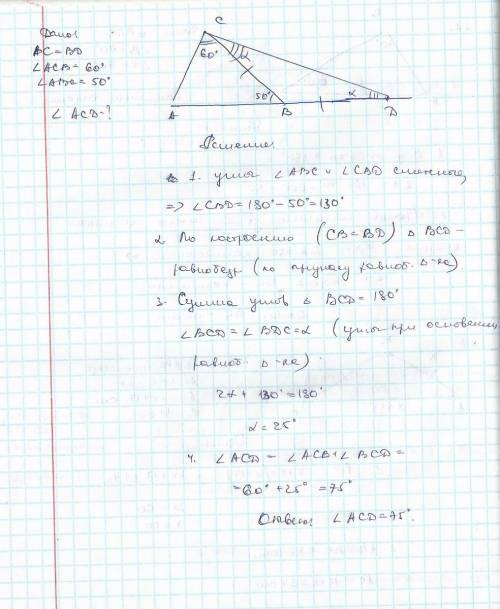 Дано:
AC = BD
∠ACB = 60°
∠ABC = 50°
∠ACD - ?
C
60°
α
50°
α
A
B
D
Решение:
1. углы ∠ABC и ∠CBD смежные,
=> ∠CBD = 180° - 50° = 130°
2. По построению (CB = BD) Δ BCD -
равнобедр (по признаку равноб. Δ-ка)
3. Сумма углов Δ BCD = 180°
∠BCD = ∠BDC = α (углы при основении
равноб. Δ-ка)
2α + 130° = 180°
α = 25°
4. ∠ACD = ∠ACB + ∠BCD =
= 60° + 25° = 75°
Ответ: ∠ACD = 75°.